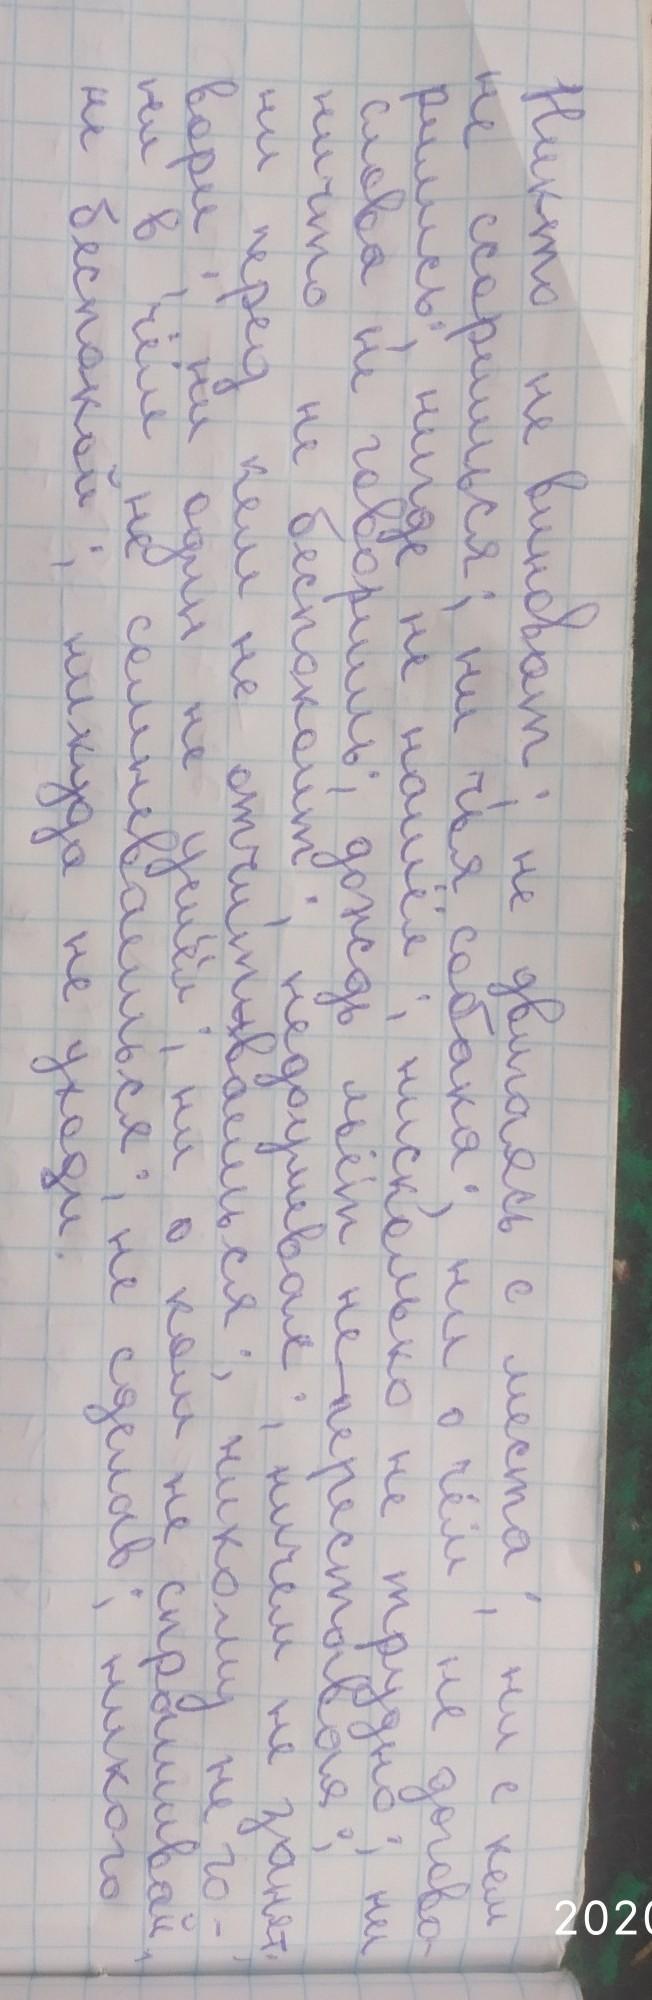 Никто не виноват; не двигаясь с места; ни с кем
не ссоришься; ни чья собака; ни о чём, не догово-
рились; нигде не нашёл; нисколько не трудно; ни
слова не говоришь; дождь льёт не переставая;
ничто не беспокоит; недоумевая; ничем не занят;
ни перед кем не отчитываешься; никому не го-
вори; ни один не ушёл; ни о ком не спрашивай;
ни в чём не сомневаешься; не сделав; никого
не беспокой; никуда не уходи.
2020